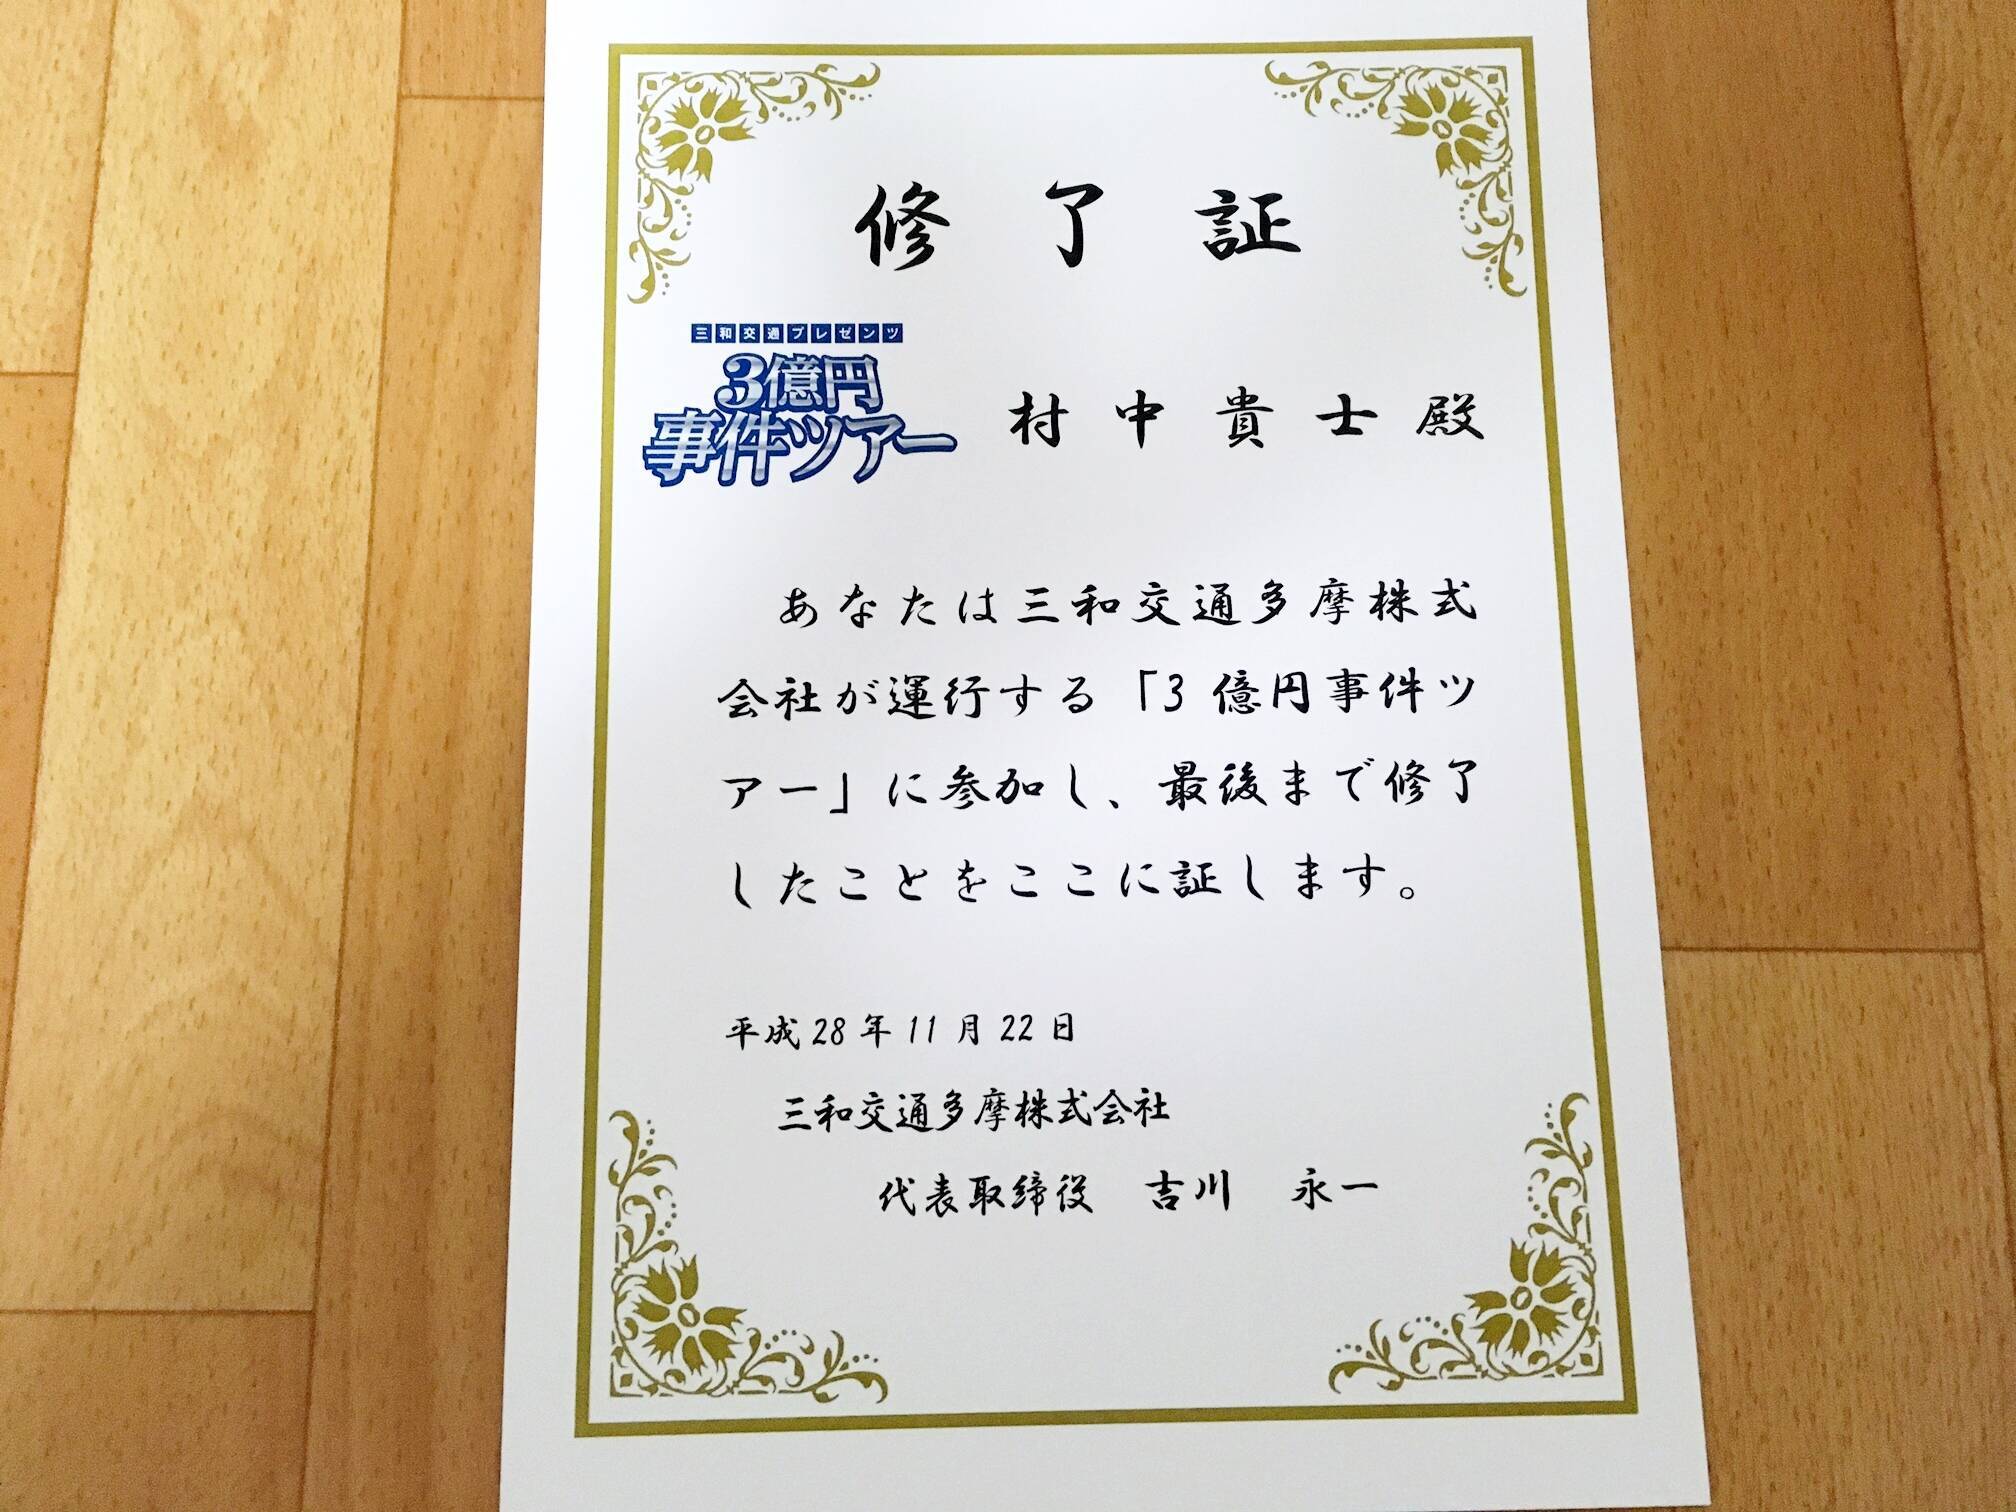 修了証
三和交通プレゼンツ
3億円
事件ツアー
村中貴士殿
あなたは三和交通多摩株式
会社が運行する「3億円事件ツ
アー」に参加し、最後まで修了
したことをここに証します。
平成28年11月22日
三和交通多摩株式会社
代表取締役 吉川 永一